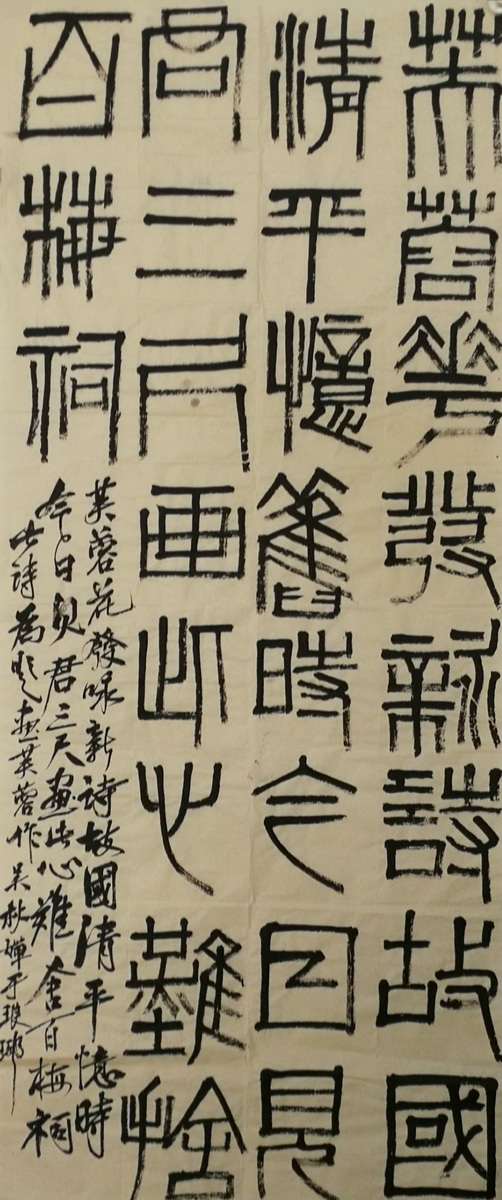 芙蓉華發咏新詩故國
清平憶舊時今日見
君三尺画此心難捨
百梅祠
芙蓉花發咏新詩故國清平憶時
今日見君三尺畫此心難舍百梅祠
此詩為題画芙蓉作吴秋婵于琅琊